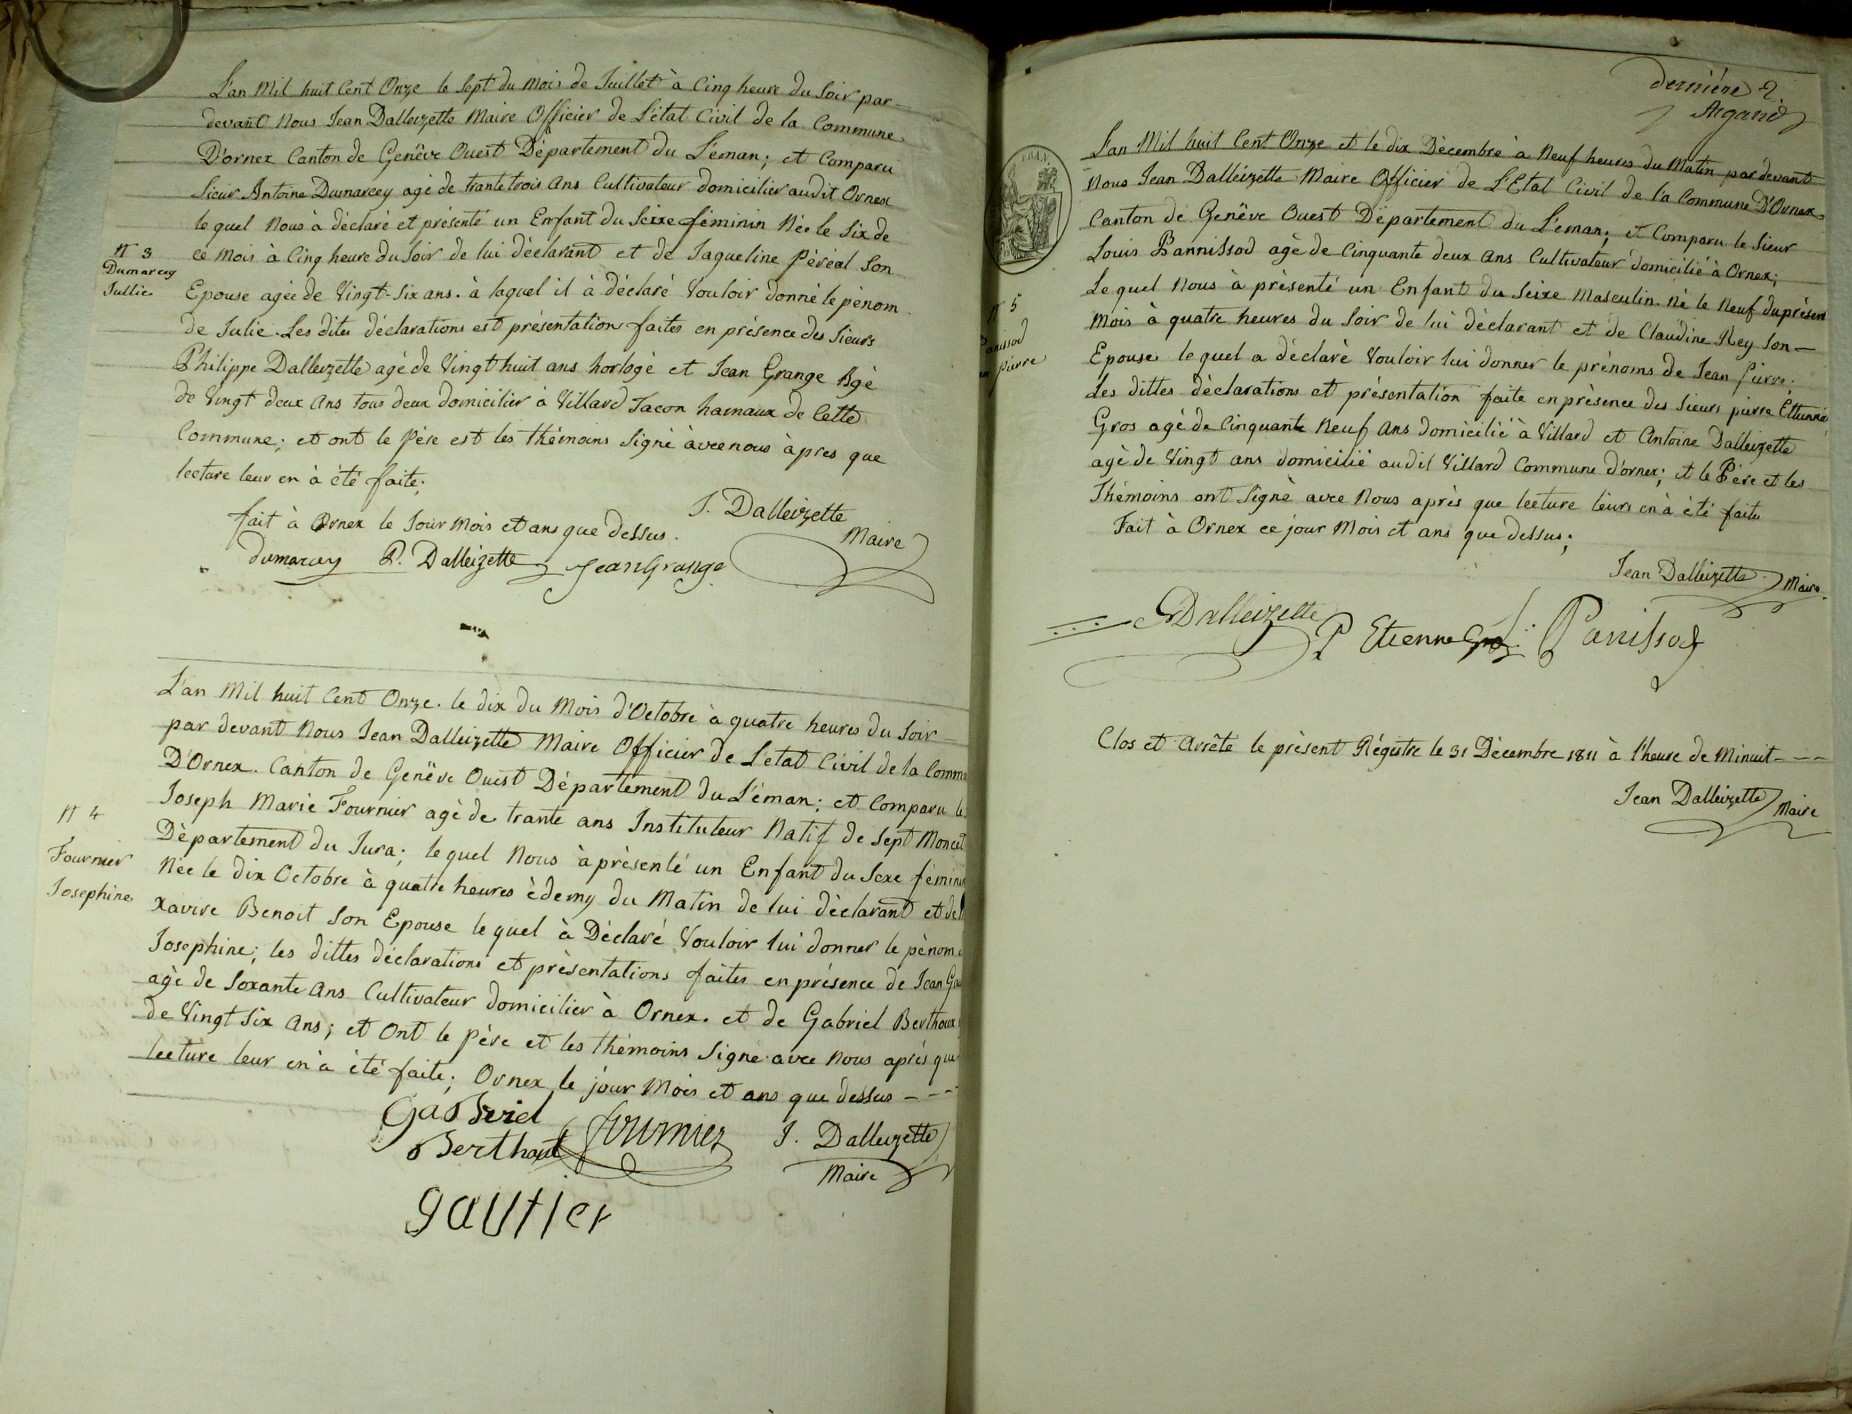 L'an Mil huit Cent Onze le Sept du Mois de Juillet à Cinq heure du Soir par-
devant Nous Jean Dalleizette Maire Officier de L'état Civil de la Commune
D'ornex Canton de Genêve Ouest Département du Léman; et Comparu
Sieur Antoine Dumarcey agé de trante trois Ans Cultivateur domicilier audit Ornex
le quel Nous à déclaré et présenté un Enfant du Seixe féminin Née le Six de
N° 3
Dumarcey
Jullie
ce Mois à Cinq heure du Soir de lui déclarant et de Jaqueline Péréal Son
Epouse agée de Vingt-Six ans. à laquel il à déclaré Vouloir donné le pénom
de Julie. Les dites déclarations est présentation faites en présence des Sieurs
Philippe Dalleizette agé de Vingt huit ans horlogé et Jean Grange Agé
de Vingt deux Ans tous deux domicilier à Villard Tacon hamaux de Cette
Commune; et ont le Père est les thémoins Signé àvec nous àpres que
lecture leur en à été faite;
fait à Ornex le Jour Mois et ans que dessus.
J. Dalleizette
Maire
dumarcey P. Dalleizette Jean Grange
L'an Mil huit Cent Onze. le dix du Mois d'Octobre à quatre heures du Soir
par devant Nous Jean Dalleizette Maire Officier de L'état Civil de la Comm
D'Ornex. Canton de Genêve Ouest Département du Léman; et Comparu le
N° 4
Fournier
Josephine
Joseph Marie Fournier agé de trante ans Instituteur Natif de Sept Moncel
Département du Jura; lequel Nous à présenté un Enfant du Sexe fémini
Née le dix Octobre à quatre heures èdemy du Matin de lui déclarant et de
xavire Benoit Son Epouse lequel à Déclaré Vouloir lui donner le pénom
Josephine; les dittes déclarations et présentations faites en présence de Jean Ga
agé de Soxante Ans Cultivateur domicilier à Ornex. et de Gabriel Berthoux
de Vingt Six Ans; et Ont le Père et les thémoins Signé avec Nous après que
lecture leur en à été faite; Ornex le jour Mois et ans que dessus - - -
Gabriel
Berthout fournier J. Dalleizette
Maire
gautier
dernière 2
Argand
L'an Mil huit Cent Onze et le dix Décembre à Neuf heures du Matin par devant
Nous Jean Dalleizette Maire Officier de L'Etat Civil de la Commune D'Ornex
Canton de Genêve Ouest Département du Léman; et Comparu le Sieur
Louis Pannissod agé de Cinquante deux ans Cultivateur domicilié à Ornex;
N° 5
anissod
Pierre
Le quel Nous à présenté un Enfant du Seixe Masculin. Né le Neuf du présent
Mois à quatre heures du Soir de lui déclarant et de Claudine Rey Son-
Epouse lequel a déclaré Vouloir lui donner le prénoms de Jean Pierre.
Les dittes déclarations et présentation faite en présence des Sieurs pierre Ettienne
Gros agé de Cinquante Neuf Ans domicilié à Villard et Antoine Dalleizette
agé de Vingt ans domicilié audit Villard Commune d'ornex; et le Père et les
Thémoins ont Signé avec Nous après que lecture leurs en à été faite
Fait à Ornex ce jour Mois et ans que dessus;
Jean Dalleizette Maire
Dalleizette P Etienne Gros Panissod
Clos et Arrêté le présent Régistre le 31 Décembre 1811 à l'heure de Minuit - - -
Jean Dalleizette Maire